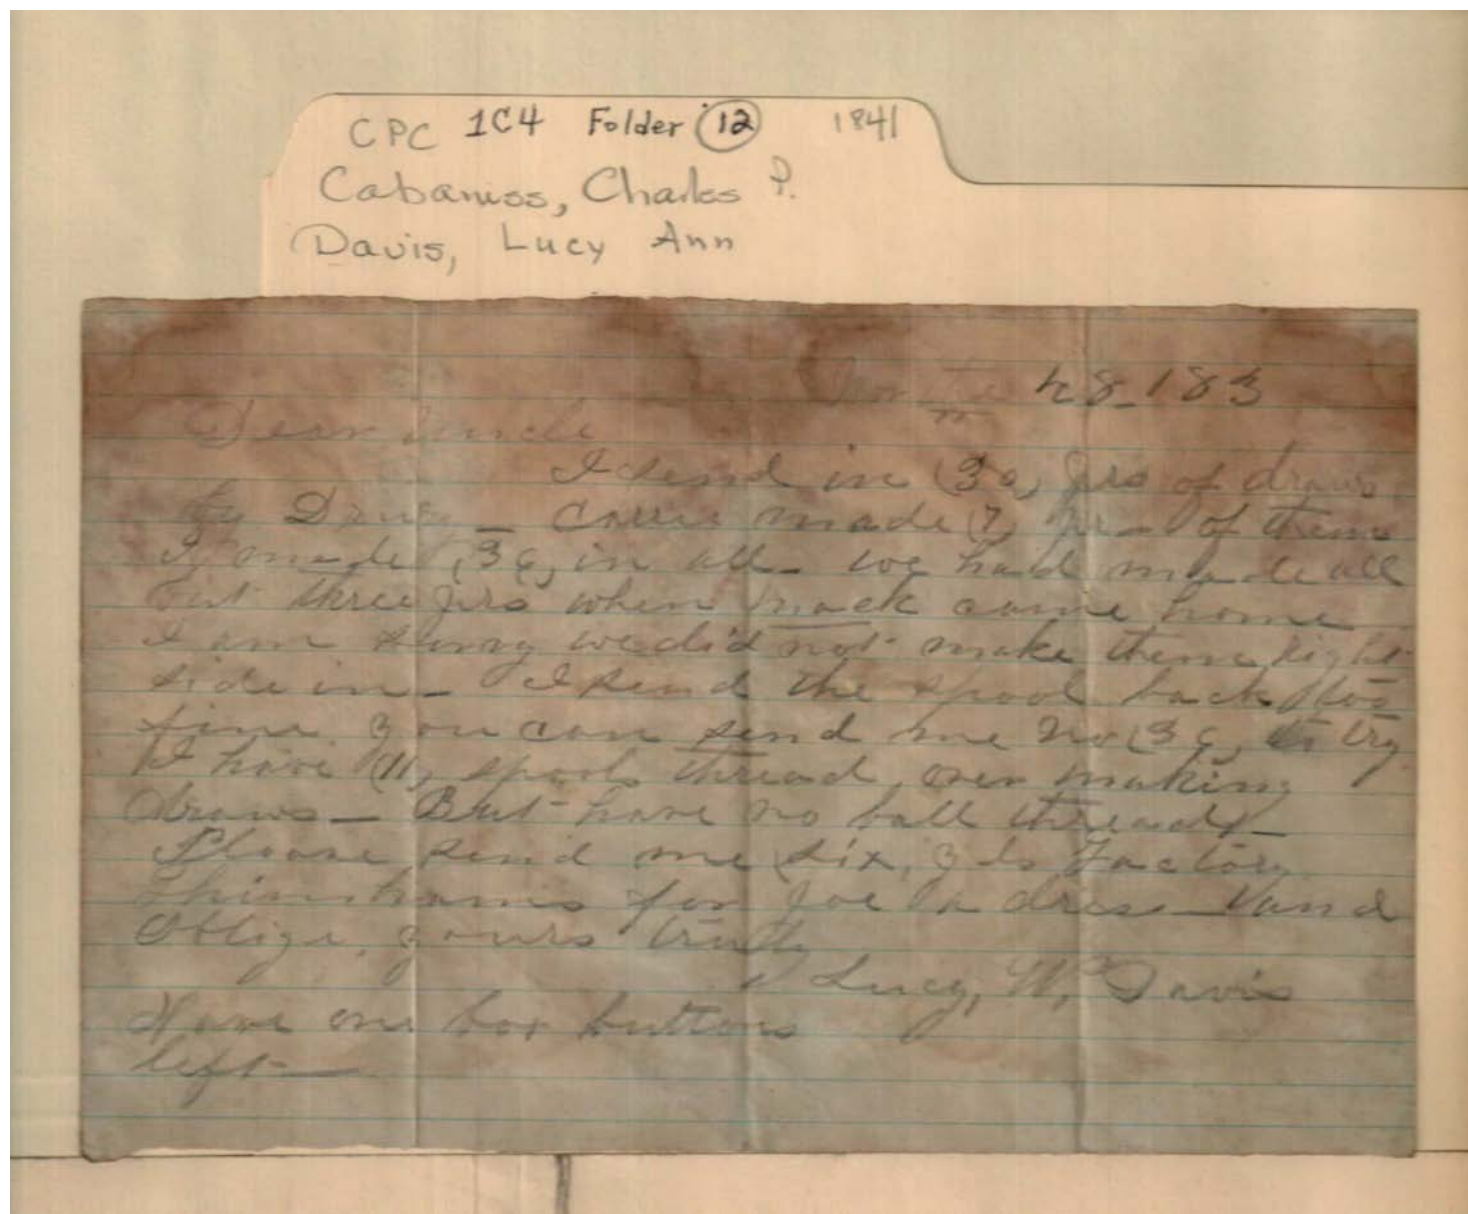 CPC 1C4 Folder 12 1841
Cabaniss, Charles P.
Davis, Lucy Ann
28_183
Dear Uncle
I send in (36) prs of draws
by _ Carrie made (7) prs _ of them
I made (36) in all _ we had made all
but three prs when Mack came home
I am sorry we did not make them right
side in _ I send the spool back too
fine you can send me No (36) to try
I have (11) spools thread over making
draws _ But have no ball thread _
Please send me six, yds Factory
for Joe a dress _ and
oblige, yours truly
Lucy, W, Davis
Have one box buttons
left _